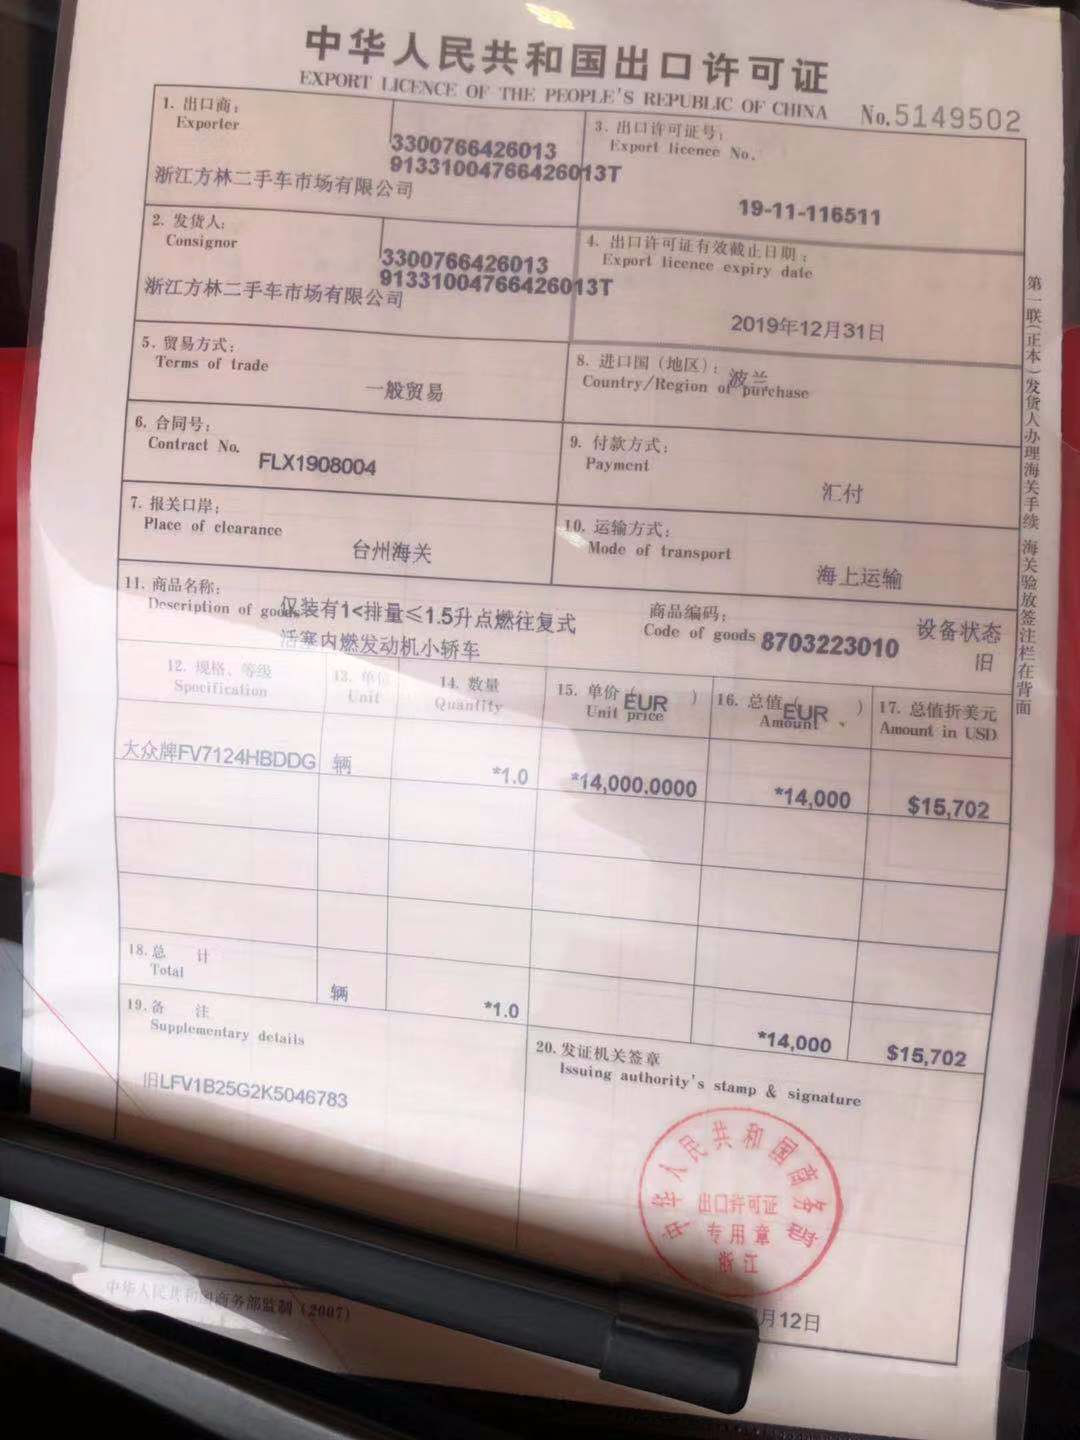 中华人民共和国出口许可证
EXPORT LICENCE OF THE PEOPLE'S REPUBLIC OF CHINA
No.5149502
1. 出口商：
Exporter
3300766426013
91331004766426013T
浙江方林二手车市场有限公司
3. 出口许可证号：
Export licence No.
19-11-116511
2. 发货人：
Consignor
3300766426013
91331004766426013T
浙江方林二手车市场有限公司
4. 出口许可证有效截止日期：
Export licence expiry date
2019年12月31日
5. 贸易方式：
Terms of trade
一般贸易
8. 进口国（地区）：
Country/Region of purchase
波兰
6. 合同号：
Contract No.
FLX1908004
9. 付款方式：
Payment
汇付
7. 报关口岸：
Place of clearance
台州海关
10. 运输方式：
Mode of transport
海上运输
11. 商品名称：
Description of goods
仅装有1<排量≤1.5升点燃往复式
活塞内燃发动机小轿车
商品编码：
Code of goods 8703223010
设备状态
旧
12. 规格、等级
Specification
13. 单位
Unit
14. 数量
Quantity
15. 单价（EUR）
Unit price
16. 总值（EUR）
Amount
17. 总值折美元
Amount in USD
大众牌FV7124HBDDG 辆 *1.0 *14,000.0000 *14,000 $15,702
18. 总 计
Total
辆 *1.0 *14,000 $15,702
19. 备 注
Supplementary details
旧LFV1B25G2K5046783
20. 发证机关签章
Issuing authority's stamp & signature
中华人民共和国商务部
出口许可证
专用章
浙江
月12日
中华人民共和国商务部监制（2007）
第一联（正本）发货人办理海关手续 海关验放签注栏在背面